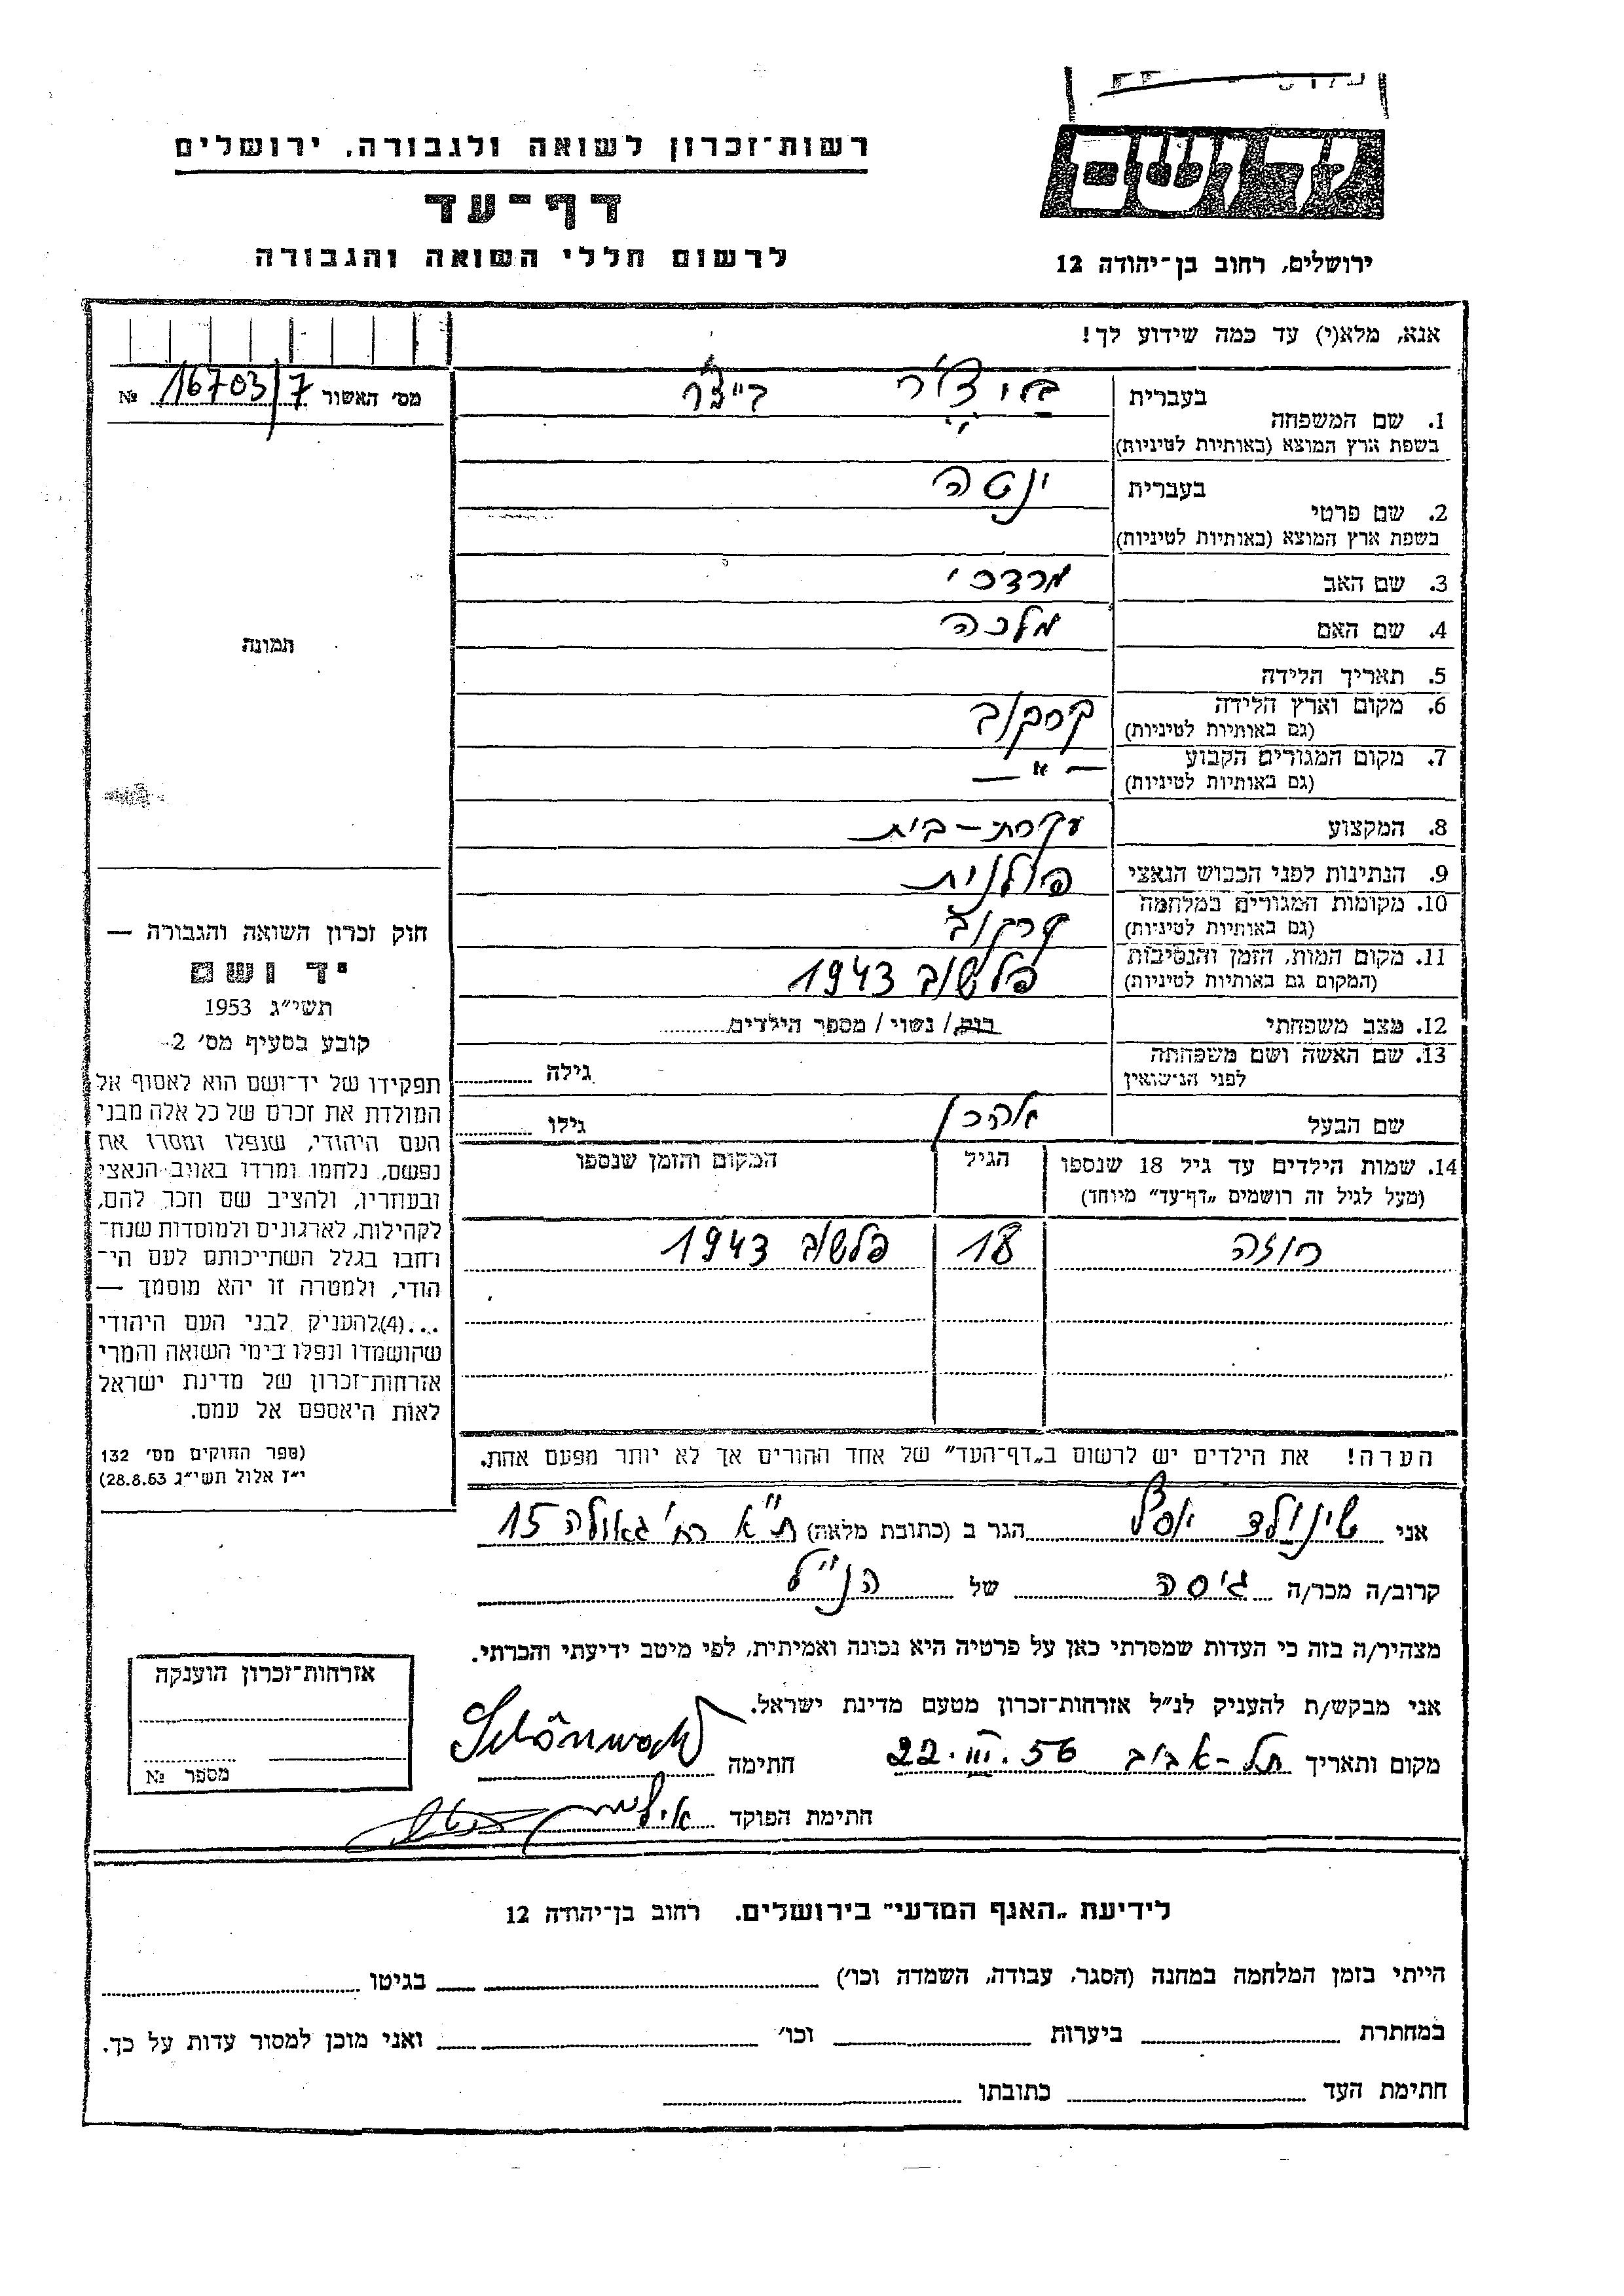 רשות־זכרון לשואה ולגבורה, ירושלים
דף־עד
לרשום חללי השואה והגבורה
ירושלים, רחוב בן־יהודה 12
אנא, מלא(י) עד כמה שידוע לך!
מס' האשור 16703/7 №
תמונה
חוק זכרון השואה והגבורה —
יד ושם
תשי״ג 1953
קובע בסעיף מס' 2-
תפקידו של יד־ושם הוא לאסוף אל
המולדת את זכרם של כל אלה מבני
העם היהודי, שנפלו ומסרו את
נפשם, נלחמו ומרדו באויב הנאצי
ובעוזריו, ולהציב שם וזכר להם,
לקהילות, לארגונים ולמוסדות שנח־
רחבו בגלל השתייכותם לעם הי־
הודי, ולמטרה זו יהא מוסמך —
...(4)להעניק לבני העם היהודי
שהושמדו ונפלו בימי השואה והמרי
אזרחות־זכרון של מדינת ישראל
לאות היאספם אל עמם.
(ספר החוקים מס' 132
י״ז אלול תשי״ג 28.8.53)
1. שם המשפחה
בעברית
בשפת ארץ המוצא (באותיות לטיניות)
2. שם פרטי
בעברית ינטה
בשפת ארץ המוצא (באותיות לטיניות)
3. שם האב מרדכי
4. שם האם מלכה
5. תאריך הלידה
6. מקום וארץ הלידה קרקוב
(גם באותיות לטיניות)
7. מקום המגורים הקבוע — " —
(גם באותיות לטיניות)
8. המקצוע עקרת-בית
9. הנתינות לפני הכבוש הנאצי פולנית
10. מקומות המגורים במלחמה קרקוב
(גם באותיות לטיניות)
11. מקום המות, הזמן והנסיבות פלשוב 1943
(המקום גם באותיות לטיניות)
12. מצב משפחתי רווק / נשוי / מספר הילדים
13. שם האשה ושם משפחתה גילה
לפני הנישואין
שם הבעל אהרן גילו
14. שמות הילדים עד גיל 18 שנספו הגיל המקום והזמן שנספו
(מעל לגיל זה רושמים „דף־עד״ מיוחד)
רוזה 18 פלשוב 1943
הערה! את הילדים יש לרשום ב„דף־העד״ של אחד ההורים אך לא יותר מפעם אחת.
אני הגר ב (כתובת מלאה) ת"א רח' גאולה 15
קרוב/ה מכר/ה גיסה של הנ"ל
מצהיר/ה בזה כי העדות שמסרתי כאן על פרטיה היא נכונה ואמיתית, לפי מיטב ידיעתי והכרתי.
אני מבקש/ת להעניק לנ״ל אזרחות־זכרון מטעם מדינת ישראל.
מקום ותאריך תל-אביב 22.III.56 חתימה
חתימת הפוקד
אזרחות־זכרון הוענקה
מספר №
לידיעת „האגף המדעי״ בירושלים. רחוב בן־יהודה 12
הייתי בזמן המלחמה במחנה (הסגר, עבודה, השמדה וכו') בגיטו
במחתרת ביערות וכו' ואני מוכן למסור עדות על כך.
חתימת העד כתובתו